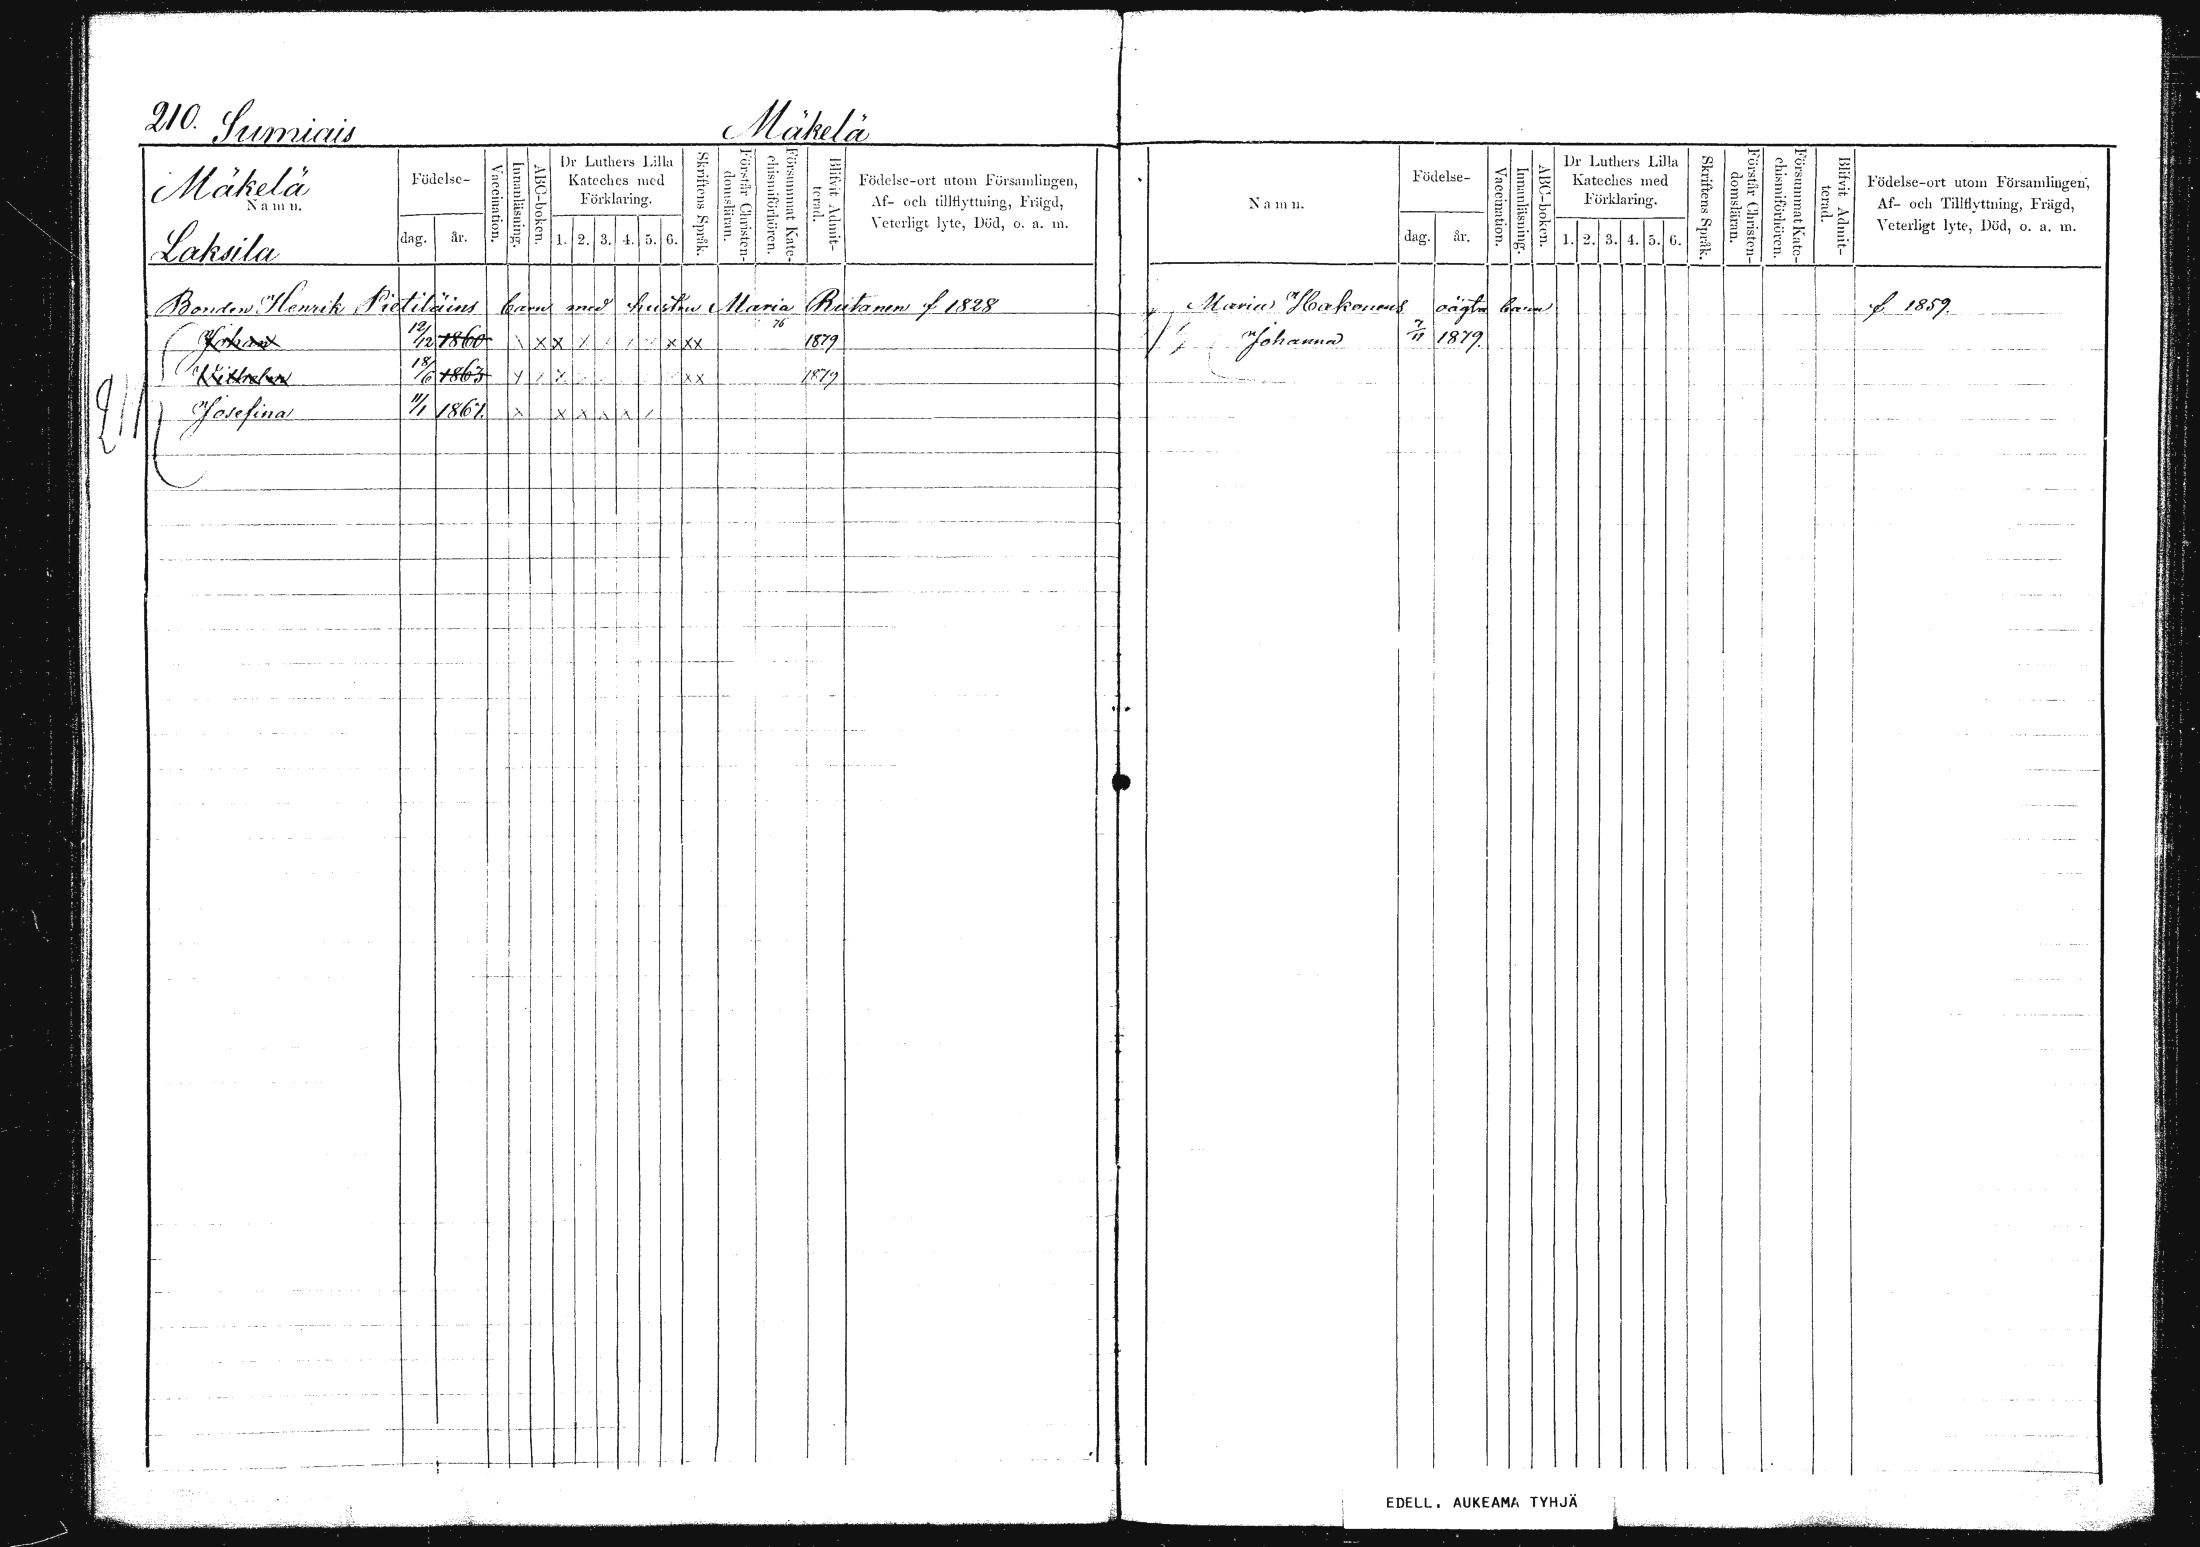 210. Sumiais Mäkelä
Mäkelä
Namn.
Laksila
Födelse-
dag. år.
Vaccination.
Innanläsning.
ABC-boken.
Dr Luthers Lilla
Kateches med
Förklaring.
1. 2. 3. 4. 5. 6.
Skriftens Språk.
Förstår Christen-
domsläran.
Försummat Kate-
chismiförhören.
Blifvit Admit-
terad.
Födelse-ort utom Församlingen,
Af- och tillflyttning, Frägd,
Veterligt lyte, Död, o. a. m.
Bonden Henrik Pietiläins barn med hustru Maria Rutanen f 1828
Johan 12/12 1860 x x x x x x x x x x 76 1879
Wilhelm 18/6 1863 x x x x x 1879
Josefina 11/1 1867. x x x x x x
211
Namn.
Födelse-
dag. år.
Vaccination.
Innanläsning.
ABC-boken.
Dr Luthers Lilla
Kateches med
Förklaring.
1. 2. 3. 4. 5. 6.
Skriftens Språk.
Förstår Christen-
domsläran.
Försummat Kate-
chismiförhören.
Blifvit Admit-
terad.
Födelse-ort utom Församlingen,
Af- och Tillflyttning, Frägd,
Veterligt lyte, Död, o. a. m.
Maria Hakonens oägta barn f 1859.
Johanna 7/11 1879.
EDELL. AUKEAMA TYHJÄ